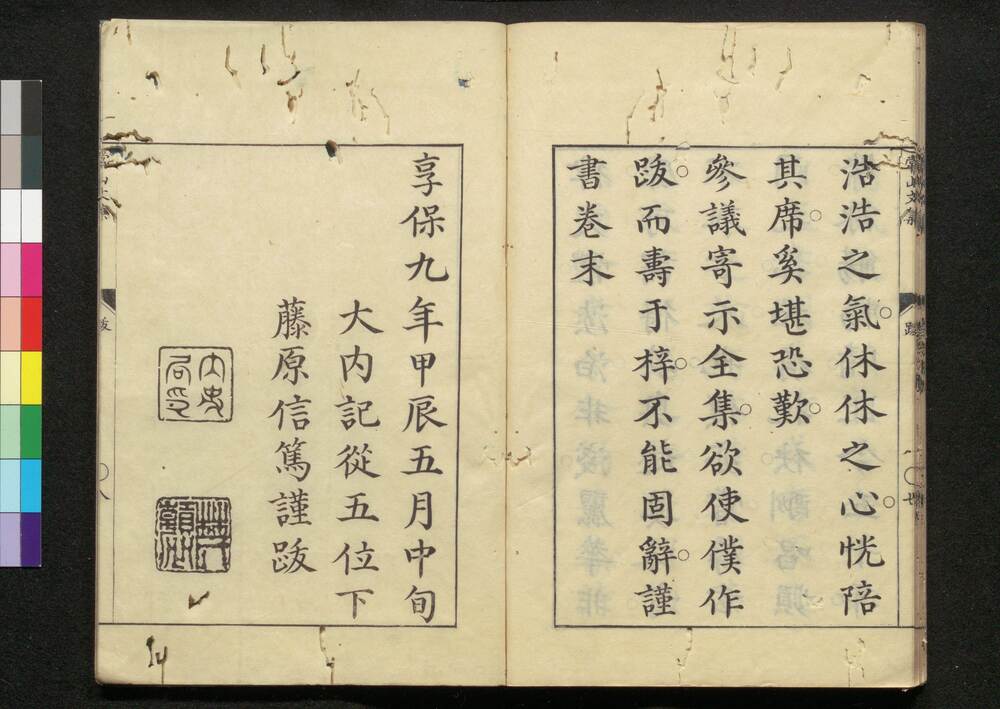 浩浩之氣休休之心恍陪
其席奚堪恐歎
參議寄示全集欲使僕作
跋而壽于梓不能固辭謹
書卷末
享保九年甲辰五月中旬
大内記從五位下
藤原信篤謹跋